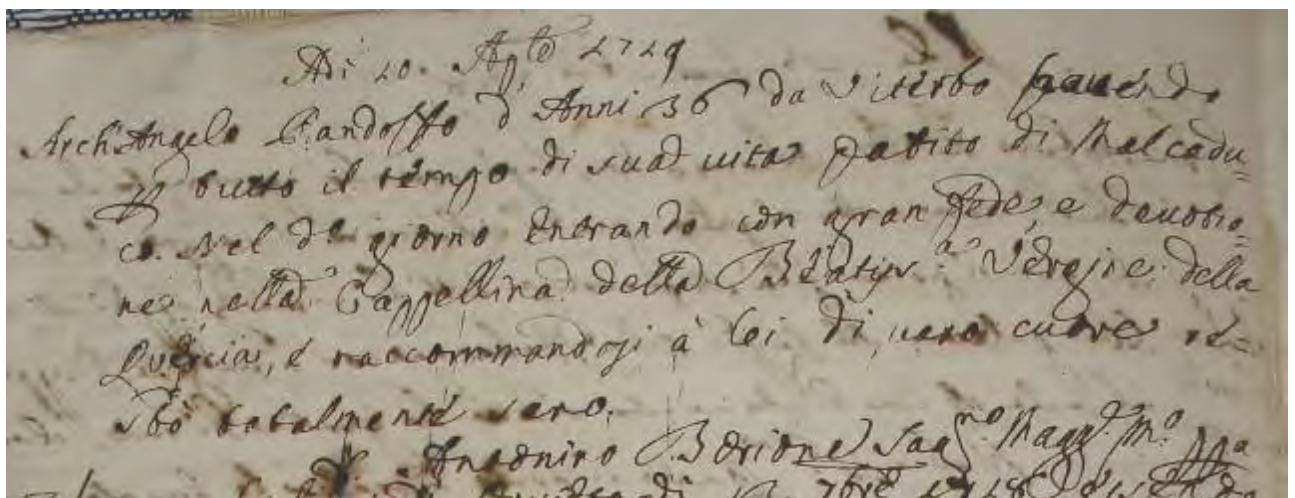 Adi 20. Agto 1729
Arch'Angelo Pandolfo d'Anni 36 da Viterbo havendo
p tutto il tempo di sua vita patito di Malcadu=
co. Nel do giorno entrando con gran fede, e devotio=
ne nella Cappellina della Beatissa Vergine della
Quercia, e raccommandosi à lei di vero cuore re=
stò totalmente sano.
Antonino Borione Sagno Maggre Mo ppa